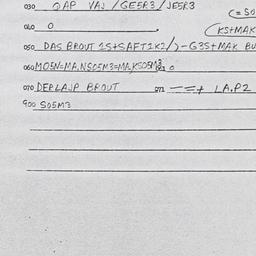 030 OAP VAJ /GE5R3/JE5R3
(=SO
040 0
(KS+MAK
050 DAS BROUT 1S+SAFT1K2/)-G3S+MAK BU
060 MO5N=MA.NSO5M3=MA.KSO5M3 0
070 DEPLAJP BROUT 071 -=+ LA.P2
900 SO5M3